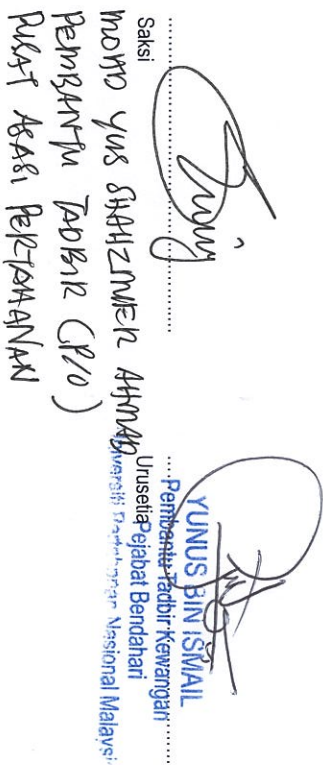 Saksi
MOHD YUS SHAHZMIER AHMAD
PEMBANTU TADBIR (P/O)
PUSAT ASASI PERTAHANAN
YUNUS BIN ISMAIL
Pembantu Tadbir Kewangan
Urusetia Pejabat Bendahari
Universiti Pertahanan Nasional Malaysi